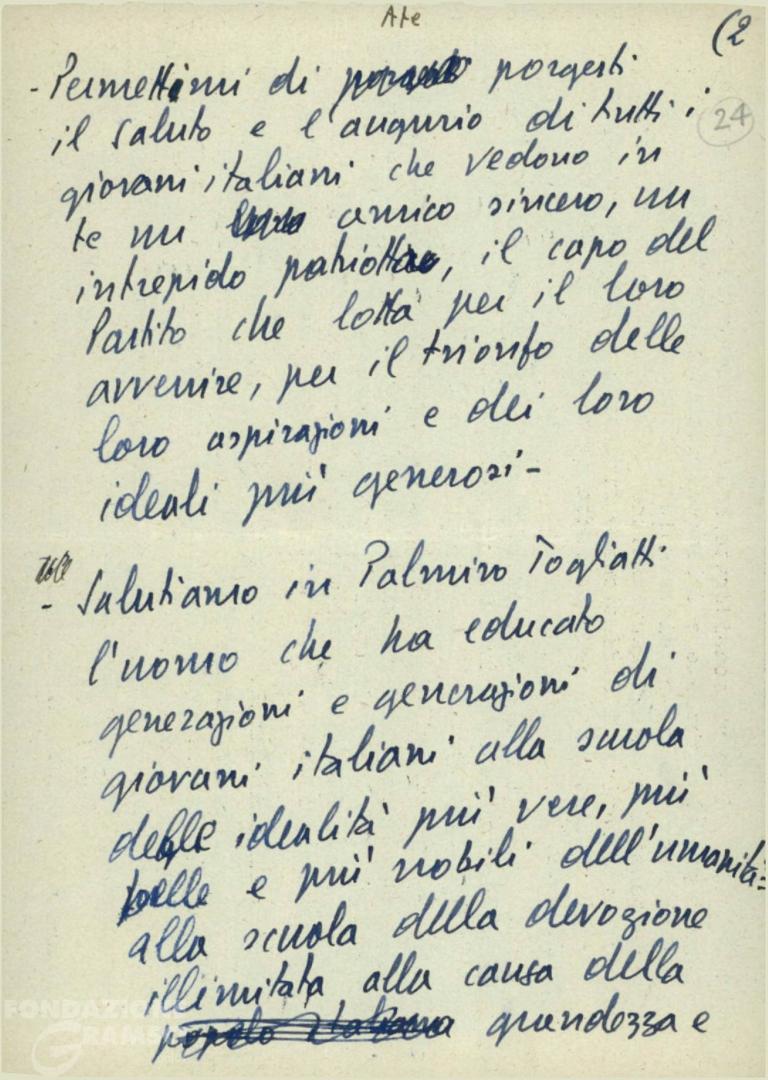 A te
(2
24
- Permettimi di porgerti
il saluto e l'augurio di tutti i
giovani italiani che vedono in
te un amico sincero, un
intrepido patriotta, il capo del
Partito che lotta per il loro
avvenire, per il trionfo delle
loro aspirazioni e dei loro
ideali più generosi -
- Salutiamo in Palmiro Togliatti
l'uomo che ha educato
generazioni e generazioni di
giovani italiani alla scuola
delle idealità più vere, più
belle e più nobili dell'umanità:
alla scuola della devozione
illimitata alla causa della
popolo italiano grandezza e
FONDAZIONE
GRAMSCI